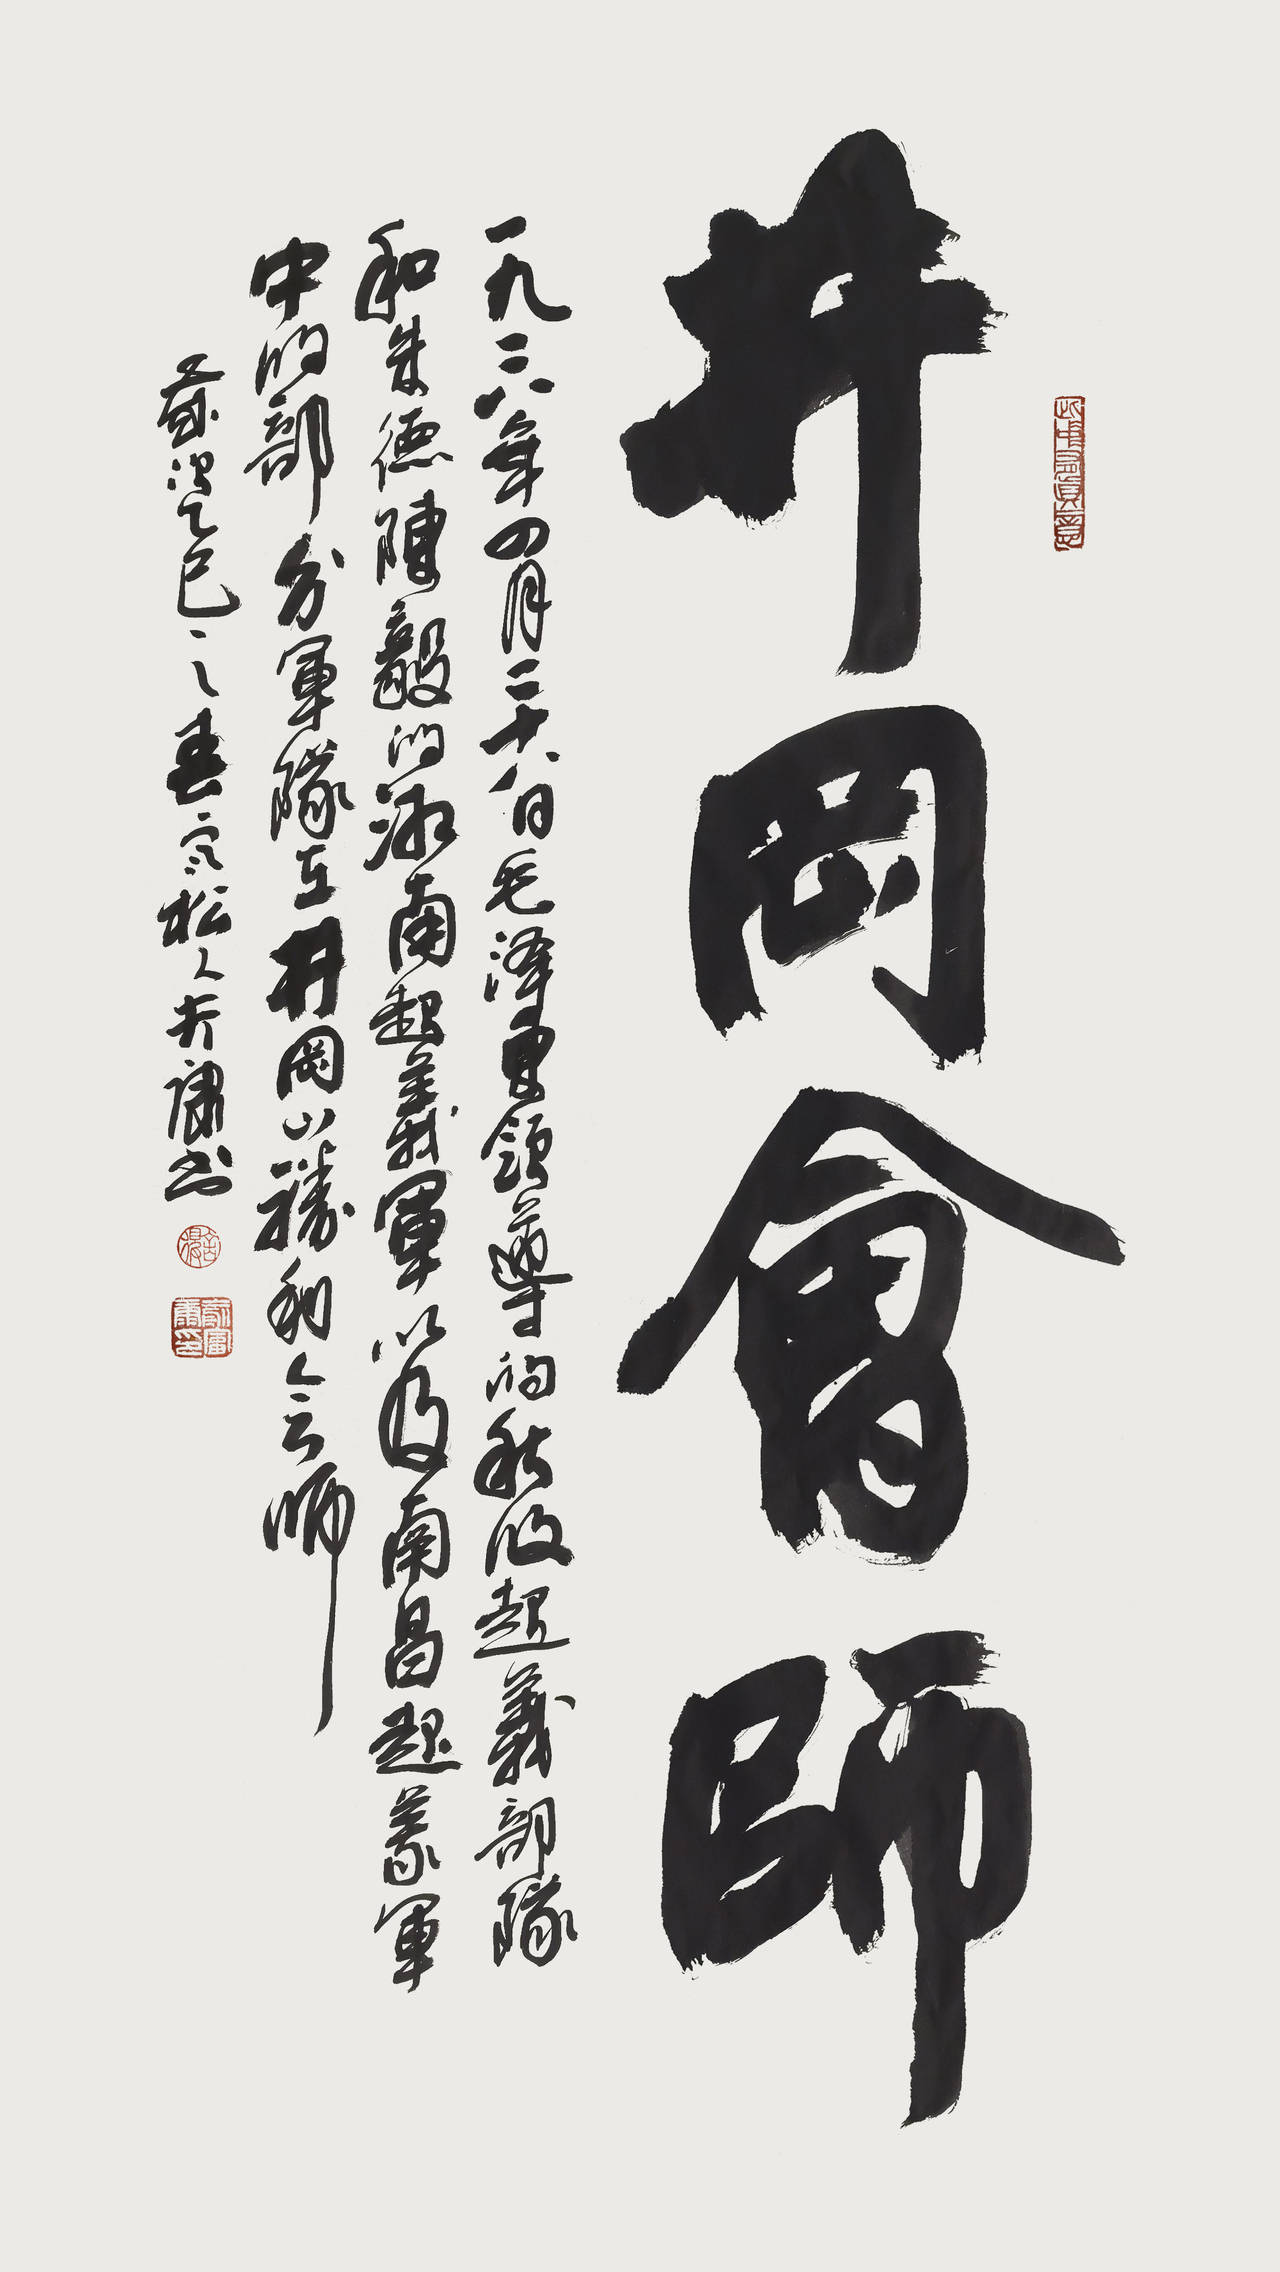 井岡會師
一九二八年四月二十八日毛泽東領導的秋收起義部隊
和朱德陳毅的湘南起義軍以及南昌起義軍
中的部分軍隊在井岡山勝利会師
歲次乙巳之春寒松人齐康书